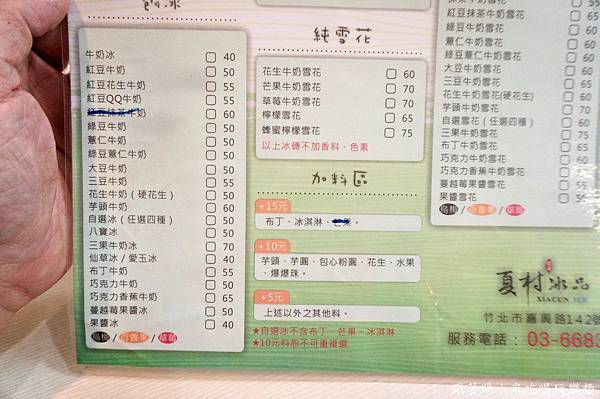 刨冰
牛奶冰 40
紅豆牛奶 50
紅豆花生牛奶 55
紅豆QQ牛奶 55
紅豆抹茶牛奶 60
綠豆牛奶 50
薏仁牛奶 50
綠豆薏仁牛奶 50
大豆牛奶 50
三豆牛奶 55
花生牛奶(硬花生) 50
芋頭牛奶 60
自選冰(任選四種) 50
八寶冰 50
三果牛奶冰 70
仙草冰/愛玉冰 40
布丁牛奶 55
巧克力牛奶 50
巧克力香蕉牛奶 65
蔓越莓果醬冰 50
果醬冰 40
純雪花
花生牛奶雪花 60
芒果牛奶雪花 70
草莓牛奶雪花 70
檸檬雪花 65
蜂蜜檸檬雪花 75
以上冰磚不加香料、色素
加料區
+15元
布丁、冰淇淋、芒果。
+10元
芋頭、芋圓、包心粉圓、花生、水果
、爆爆珠。
+5元
上述以外之其他料。
★自選冰不含布丁、芒果、冰淇淋
★10元料廚不可重複選
紅豆抹茶牛奶雪花
綠豆牛奶雪花
薏仁牛奶雪花
綠豆薏仁牛奶雪花
大豆牛奶雪花
三豆牛奶雪花
花生牛奶雪花(硬花生)
芋頭牛奶雪花
自選雪花(任選四種)
三果牛奶雪花
布丁牛奶雪花
巧克力牛奶雪花
巧克力香蕉牛奶雪花
蔓越莓果醬雪花
果醬雪花
夏村冰品
XIACUN ICE
竹北市嘉興路142號
服務電話: 03-6683